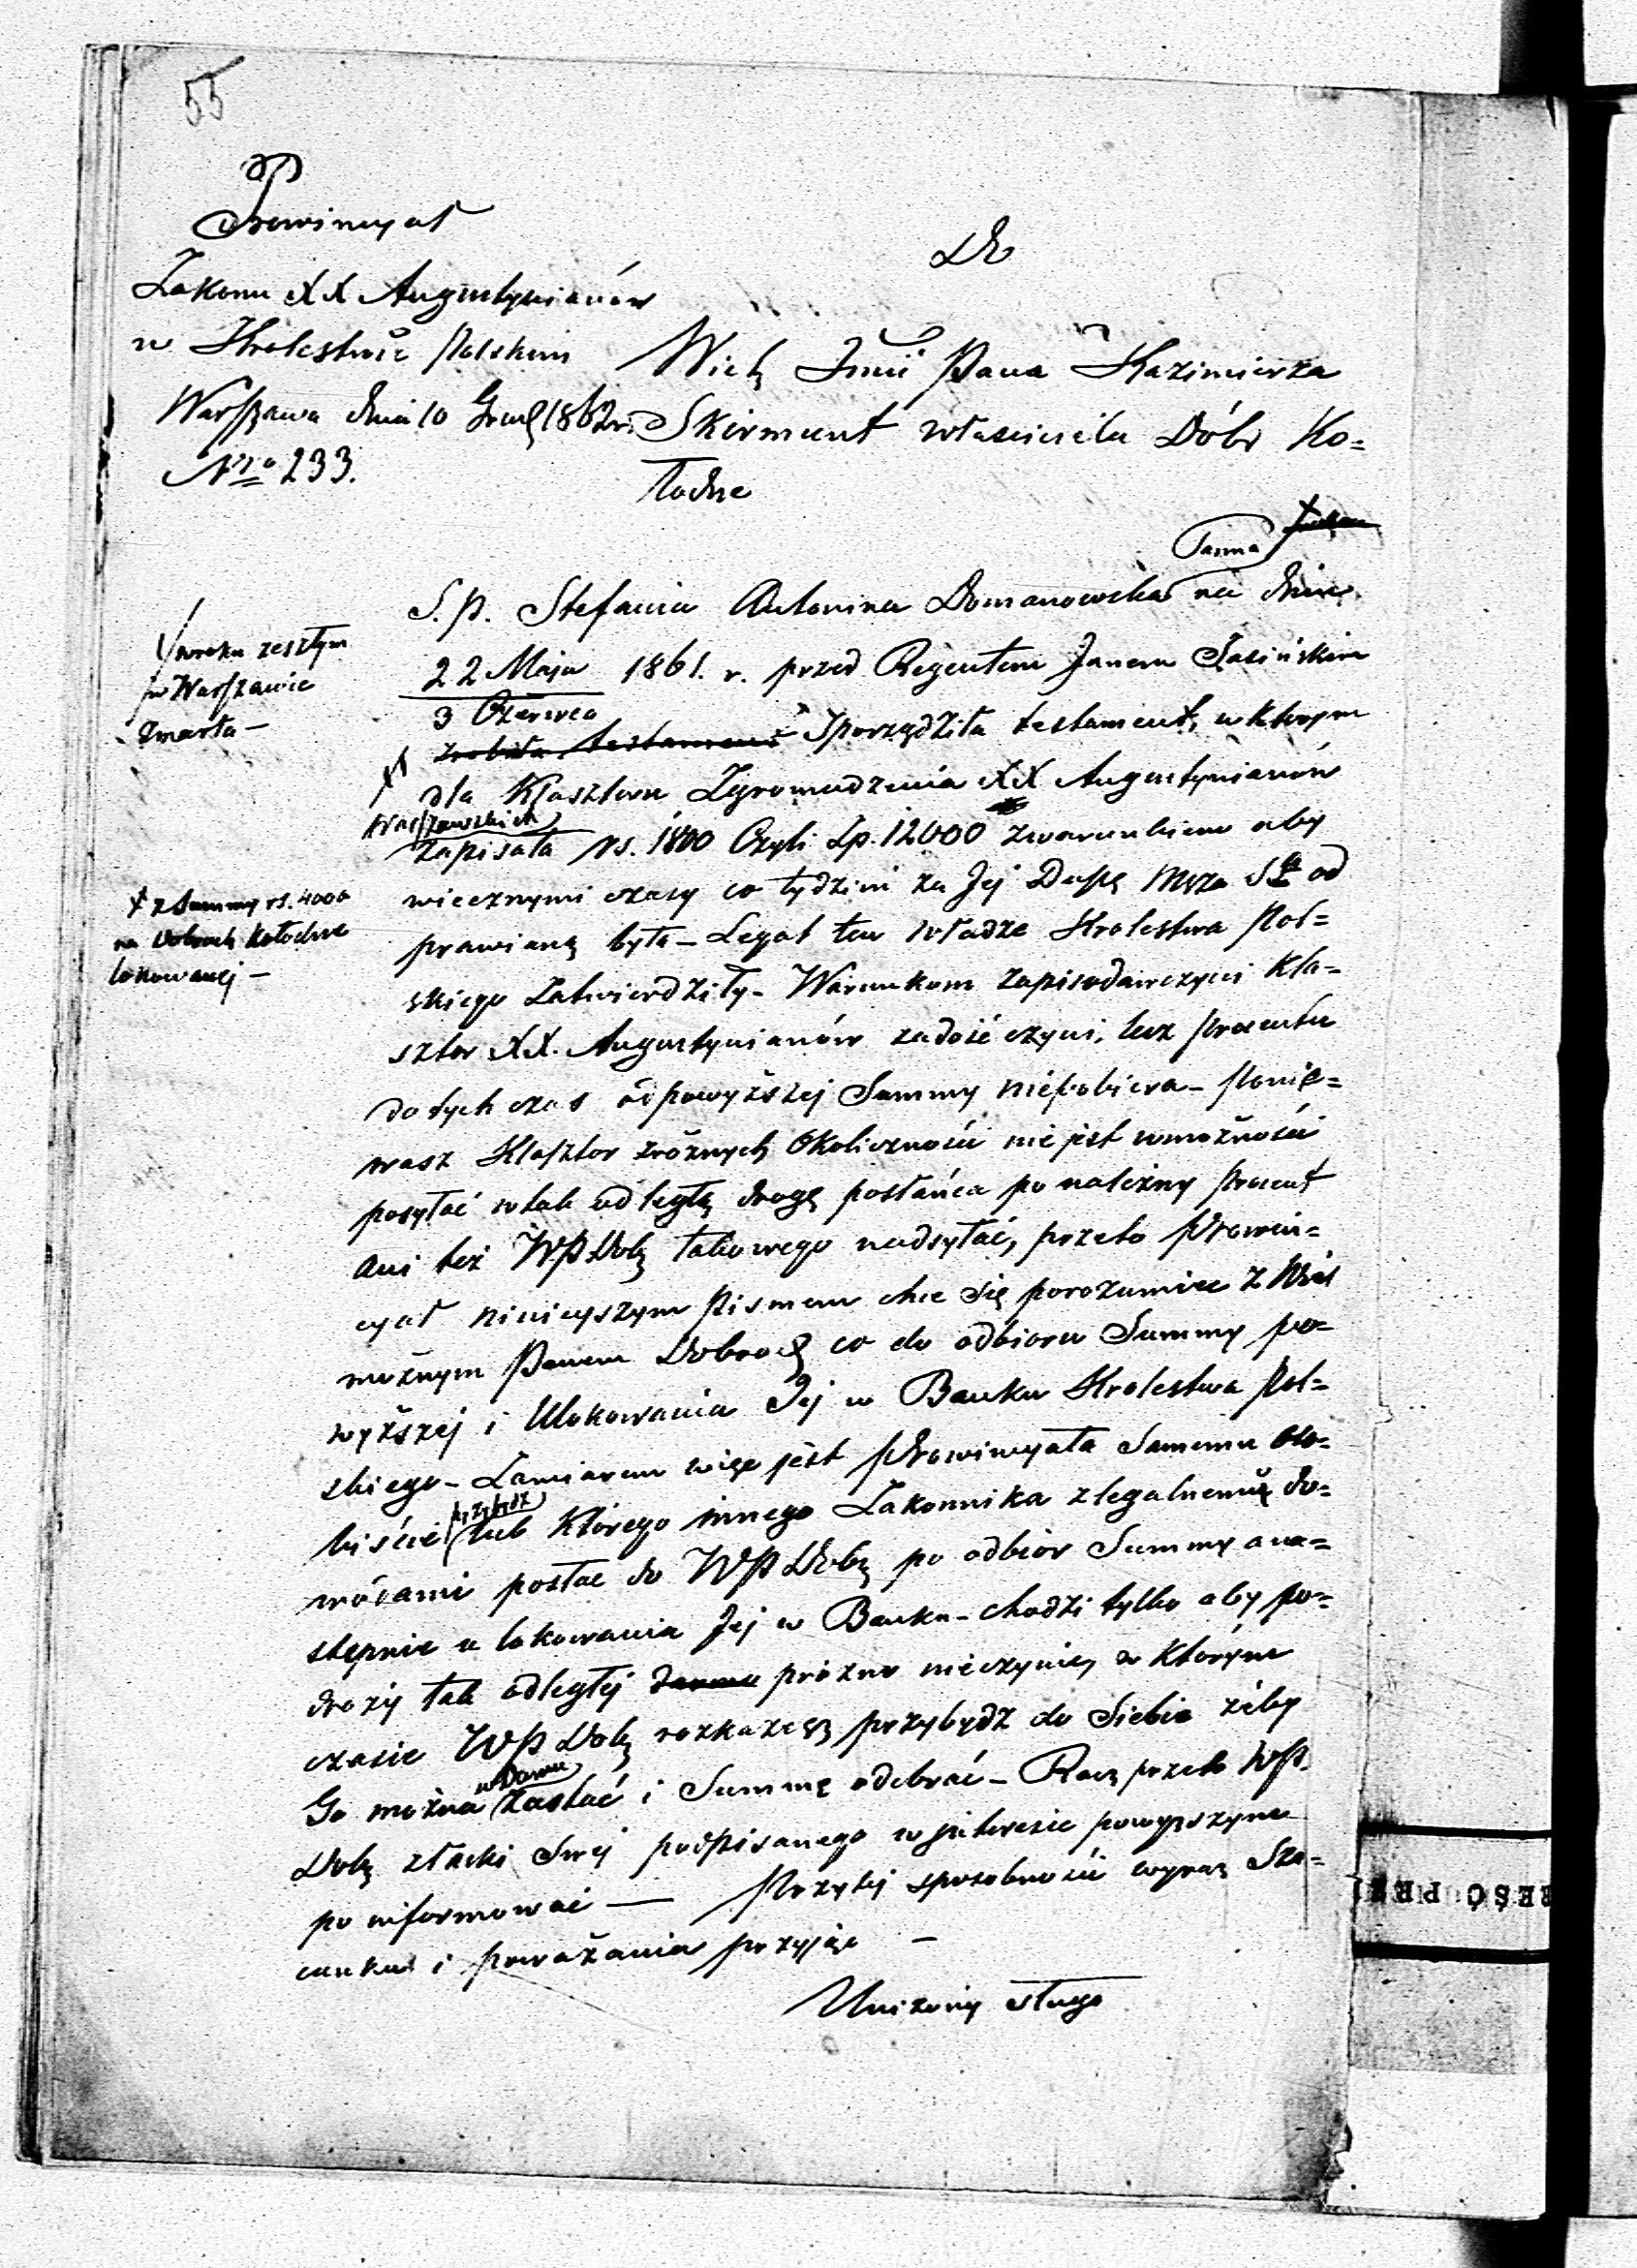 55
Prowincyał
Zakonu XX Augustynianów
w Krolestwie Polskim
Warszawa dnia 10 Grud 1862 r.
Nro 233.
Do
Wielę Jmci Pana Kazimierza
Skirmunt własciciela Dóbr Ko=
łodne
Panna
S. p. Stefania Antonina Domanowska na dniu
22 Maja 1861. r. przed Regentem Janem Jasińskim
3 Czerwca
zrobiła testament Sporządziła testament, w ktorym
w roku zeszłym
w Warszawie
zmarła –
dla Klasztoru Zgromadzenia XX Augustynianów
Warszawskich
zapisała rs. 1800 Czyli Zp. 12000 zwarunkiem aby
wiecznymi czasy co tydzień za Jej Duszę Msza Sta od
x z Summy rs. 4000
na Dobrach Kołodne
lokowanej –
prawianą była – Legat ten Władze Krolestwa Pol=
skiego Zatwierdziły – Warunkom zapisodawczyni Kla=
sztor XX. Augustynianów zadość czyni, lecz procentu
dotychczas od powyższej Summy niepobiera – Ponie=
wasz Klasztor zróżnych Okoliczności nie jest wmożności
posyłać wtak odległą drogę posłańca po należny procent
ani też WP Dobę takowego nadsyłać, przeto Prowin=
cyał niniejszym Pismem chce się porozumiec z Wiel
możnym Panem Dobrodz co do odbioru Summy po=
wyższej i Ulokowania Jej w Banku Krolestwa Pol=
skiego – Zamiarem więc jest Prowincyała Samemu Oso=
biście lub Którego innego Zakonnika zlegalnemi do=
przybydz
wódami posłac do WP Dobę po odbior Summy a na=
stępnie u lokowania Jej w Banku – chodzi tylko aby po=
droży tak odległej próżno nieczynic, w Którym
czasie WP Dobę rozkaże przybydz do Siebie żeby
Go można zastać i Summę odebrać – Racz przeto WP.
w Domu
Dobę złaski Swej podpisanego w interesie powyższym
po informować — Przytej sposobności wyraz Sza=
cunku i poważania przyjąc –
Uniżony sługa